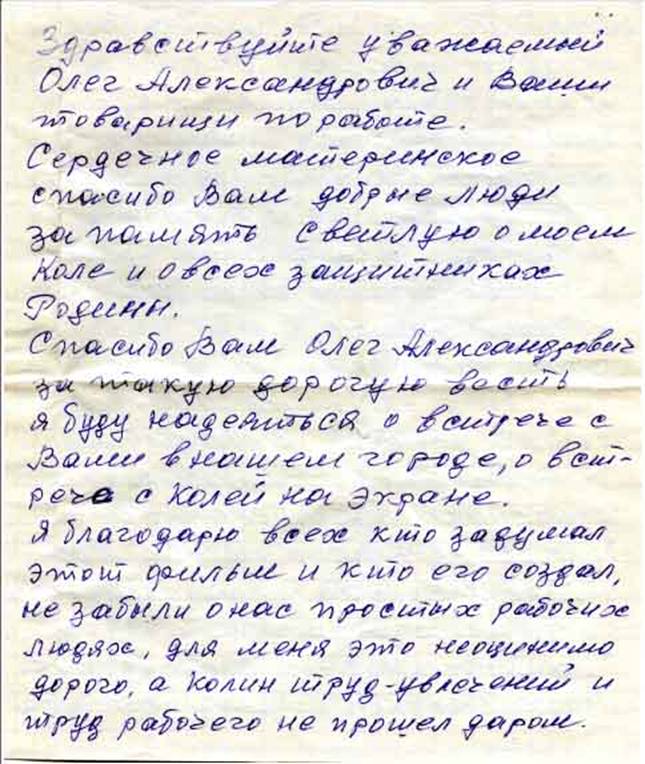 Здравствуйте уважаемый
Олег Александрович и Ваши
товарищи по работе.
Сердечное материнское
спасибо Вам добрые люди
за память светлую о моем
Коле и о всех защитниках
Родины.
Спасибо Вам Олег Александрович
за такую дорогую весть
я буду надеяться о встрече с
Вами в нашем городе, о вст-
рече с Колей на экране.
Я благодарю всех кто задумал
этот фильм и кто его создал,
не забыли о нас простых рабочих
людях, для меня это неоцинимо
дорого, а Колин труд-увлечений и
труд рабочего не прошел даром.